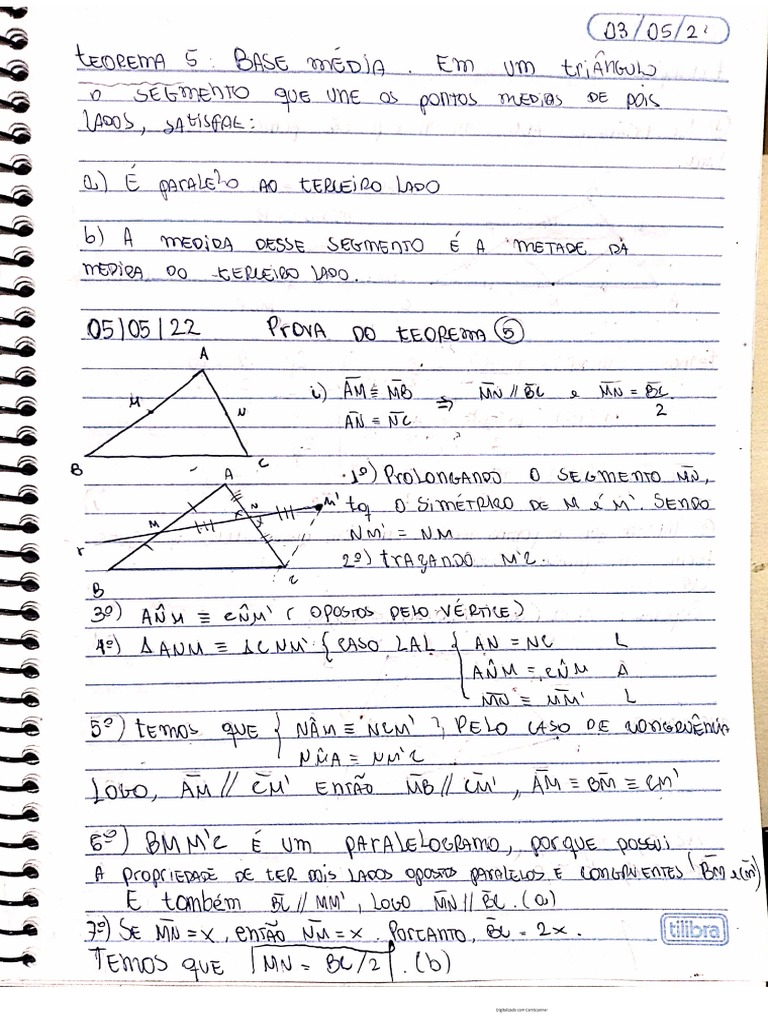 03/05/2
TEOREMA 5: BASE MÉDIA. EM UM TRIÂNGULO
O SEGMENTO QUE UNE OS PONTOS MEDIOS DE DOIS
LADOS, SATISFAZ:
a) É PARALELO AO TERCEIRO LADO
b) A MEDIDA DESSE SEGMENTO É A METADE DA
MEDIDA DO TERCEIRO LADO.
05/05/22 PROVA DO TEOREMA 5
A
M
N
B
C
i) AM ≡ MB ⇒ MN // BC e MN = BC/2
AN = NC
A
M
N
M'
r
B
C
1º) PROLONGANDO O SEGMENTO MN,
tq O SIMÉTRICO DE M É M'. SENDO
NM' = NM
2º) TRAÇANDO M'C.
3º) AN̂M ≡ CN̂M' (OPOSTOS PELO VÉRTICE)
4º) ΔANM ≡ ΔCNM' { CASO LAL { AN = NC L
AN̂M = CN̂M A
MN ≡ MM' L
5º) TEMOS QUE { NÂM ≡ NCM' }, PELO CASO DE CONGRUÊNCIA
NM̂A = NM'C
LOGO, AM // CM' ENTÃO MB // CM', AM ≡ BM ≡ CM'
6º) BMM'C É UM PARALELOGRAMO, PORQUE POSSUI
A PROPRIEDADE DE TER DOIS LADOS OPOSTOS PARALELOS E CONGRUENTES (BM e CM')
E TAMBÉM BC // MM', LOGO MN // BC. (a)
7º) SE MN = X, ENTÃO NM = X. PORTANTO, BC = 2X.
TEMOS QUE MN = BC/2. (b)
tilibra
Digitalizado com CamScanner